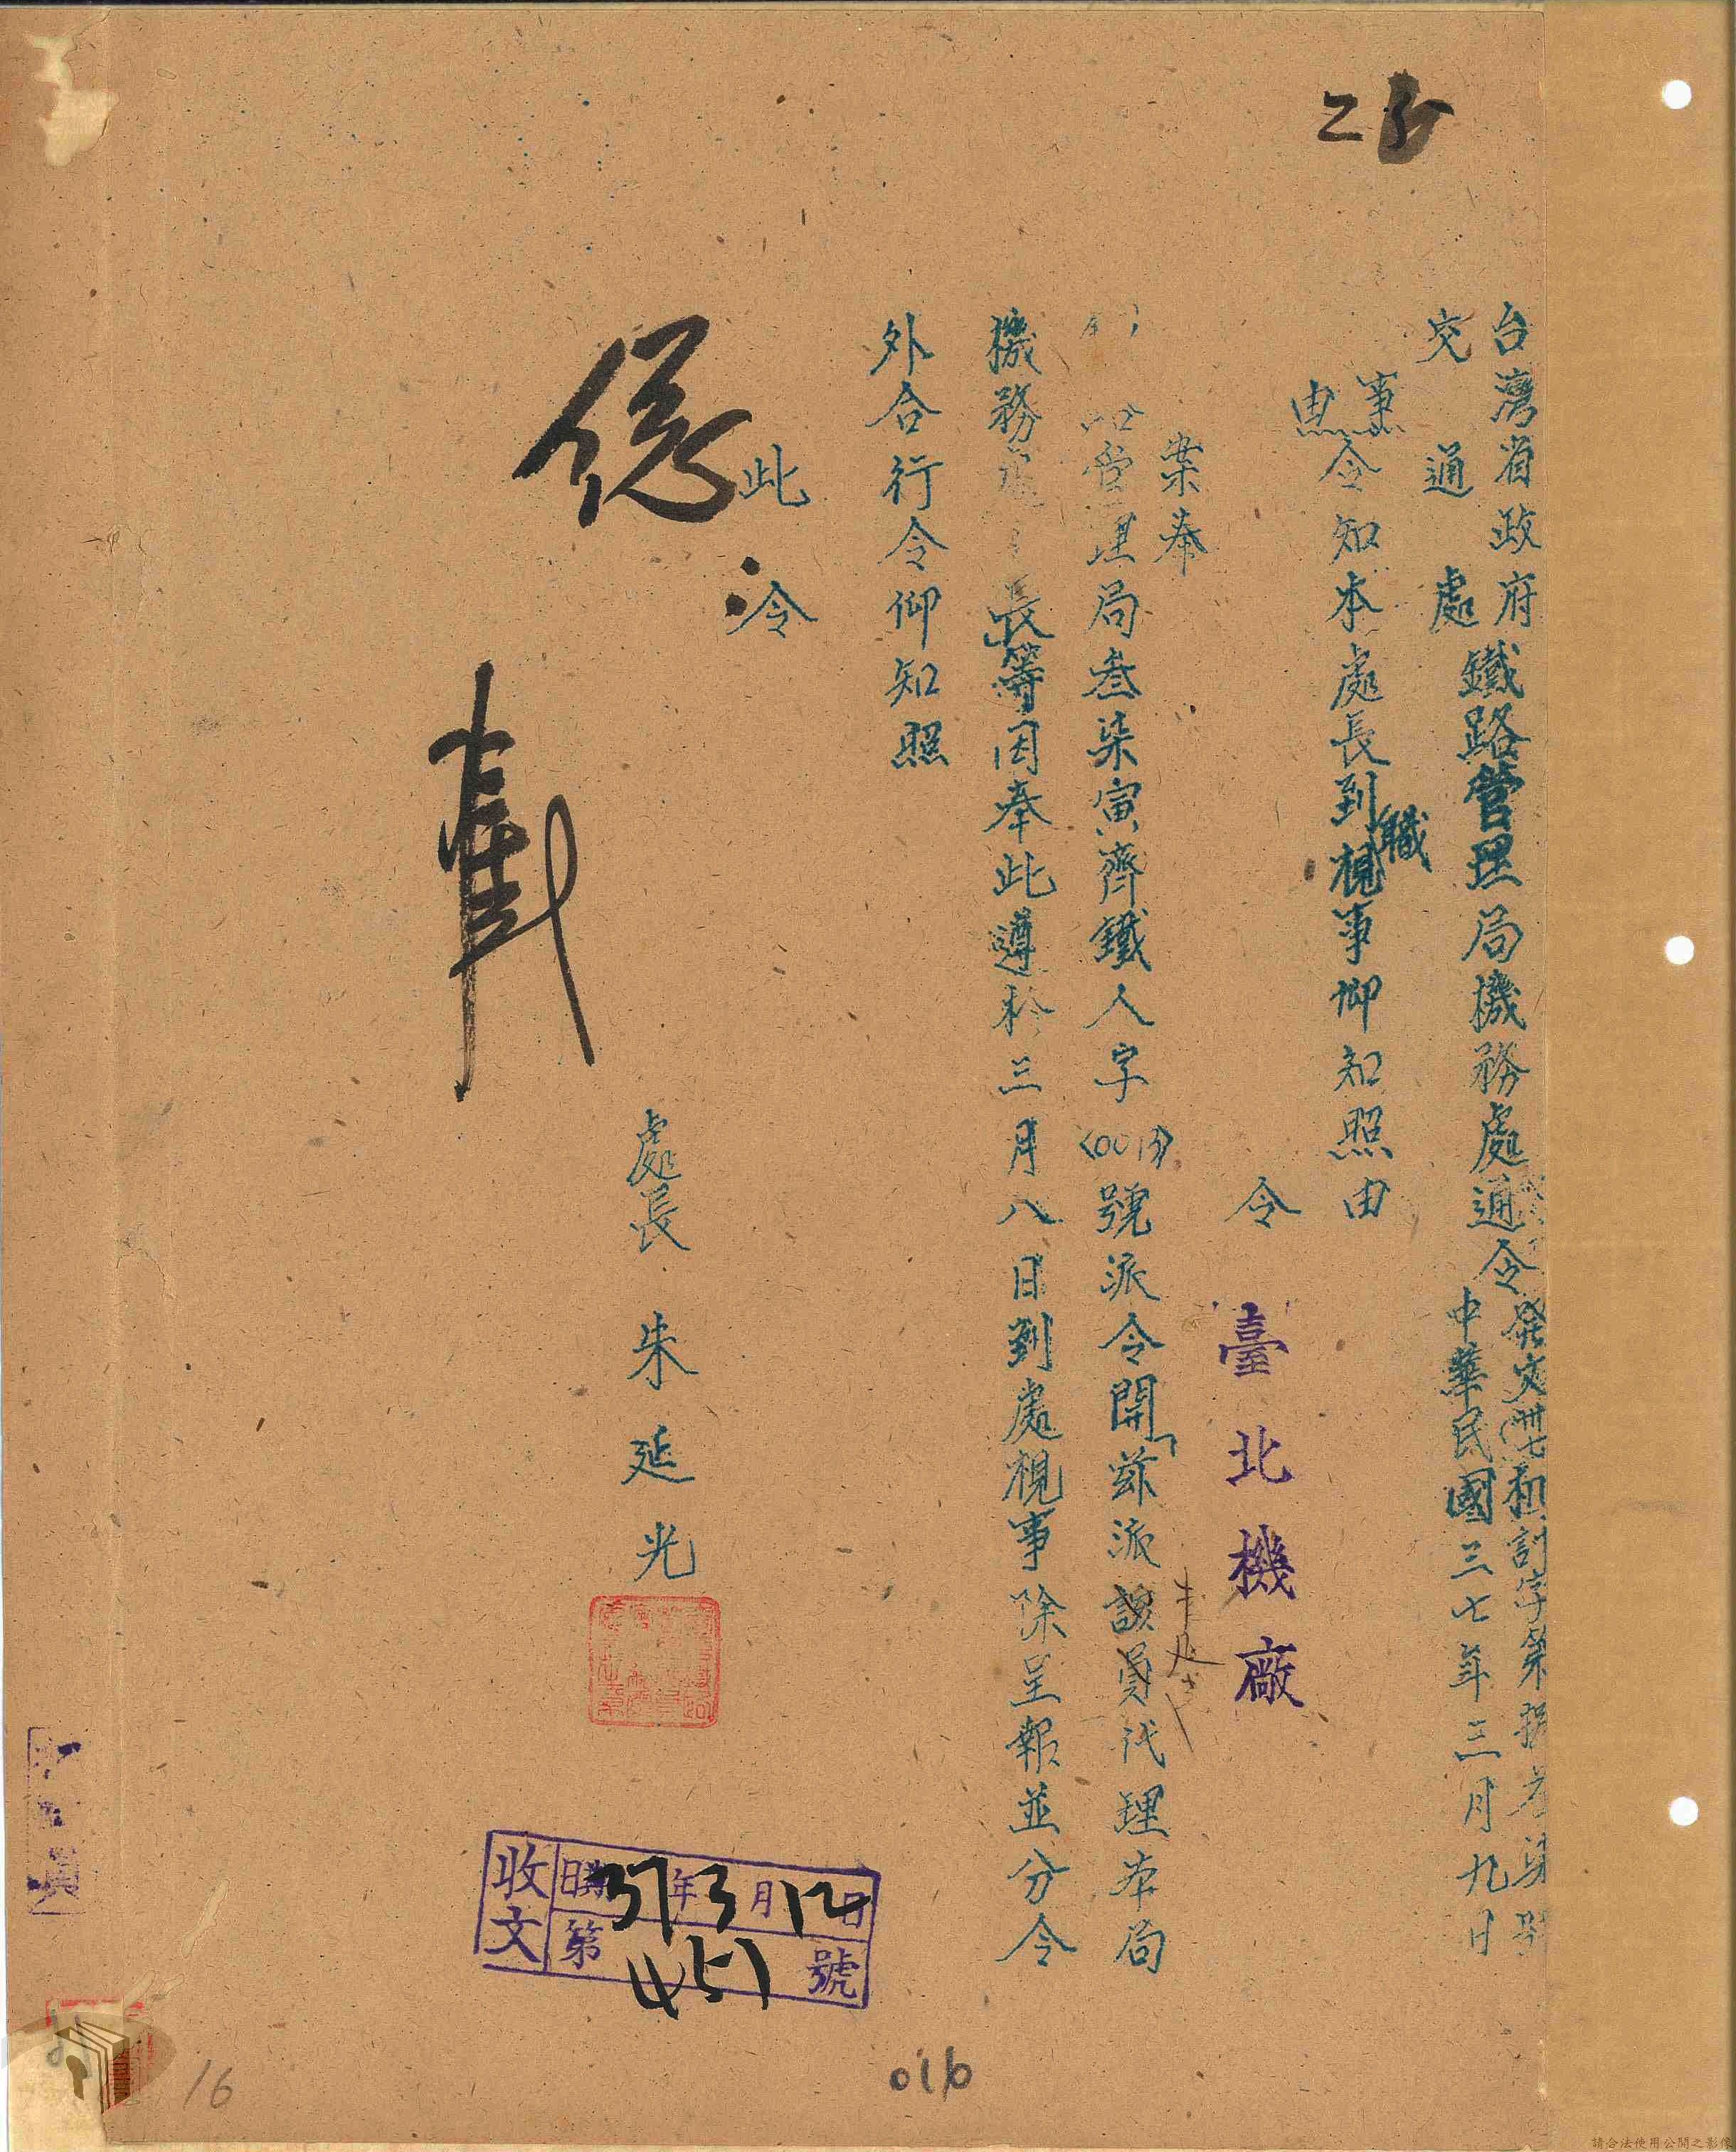 台灣省政府
交通處
鐵路管理局機務處通令
發文(卅七)機訓字第
中華民國三七年三月九日
事由
令知本處長到職視事仰知照由
令 臺北機廠
案奉
管理局叁柒寅齊鐵人字
號派令開「茲派該員代理本局
機務處長」等因奉此遵於三月八日到處視事除呈報並分令
外合行令仰知照
此令
處長 朱延光
收文
37年3月12日
第451號
016
16
請合法使用公開之影像